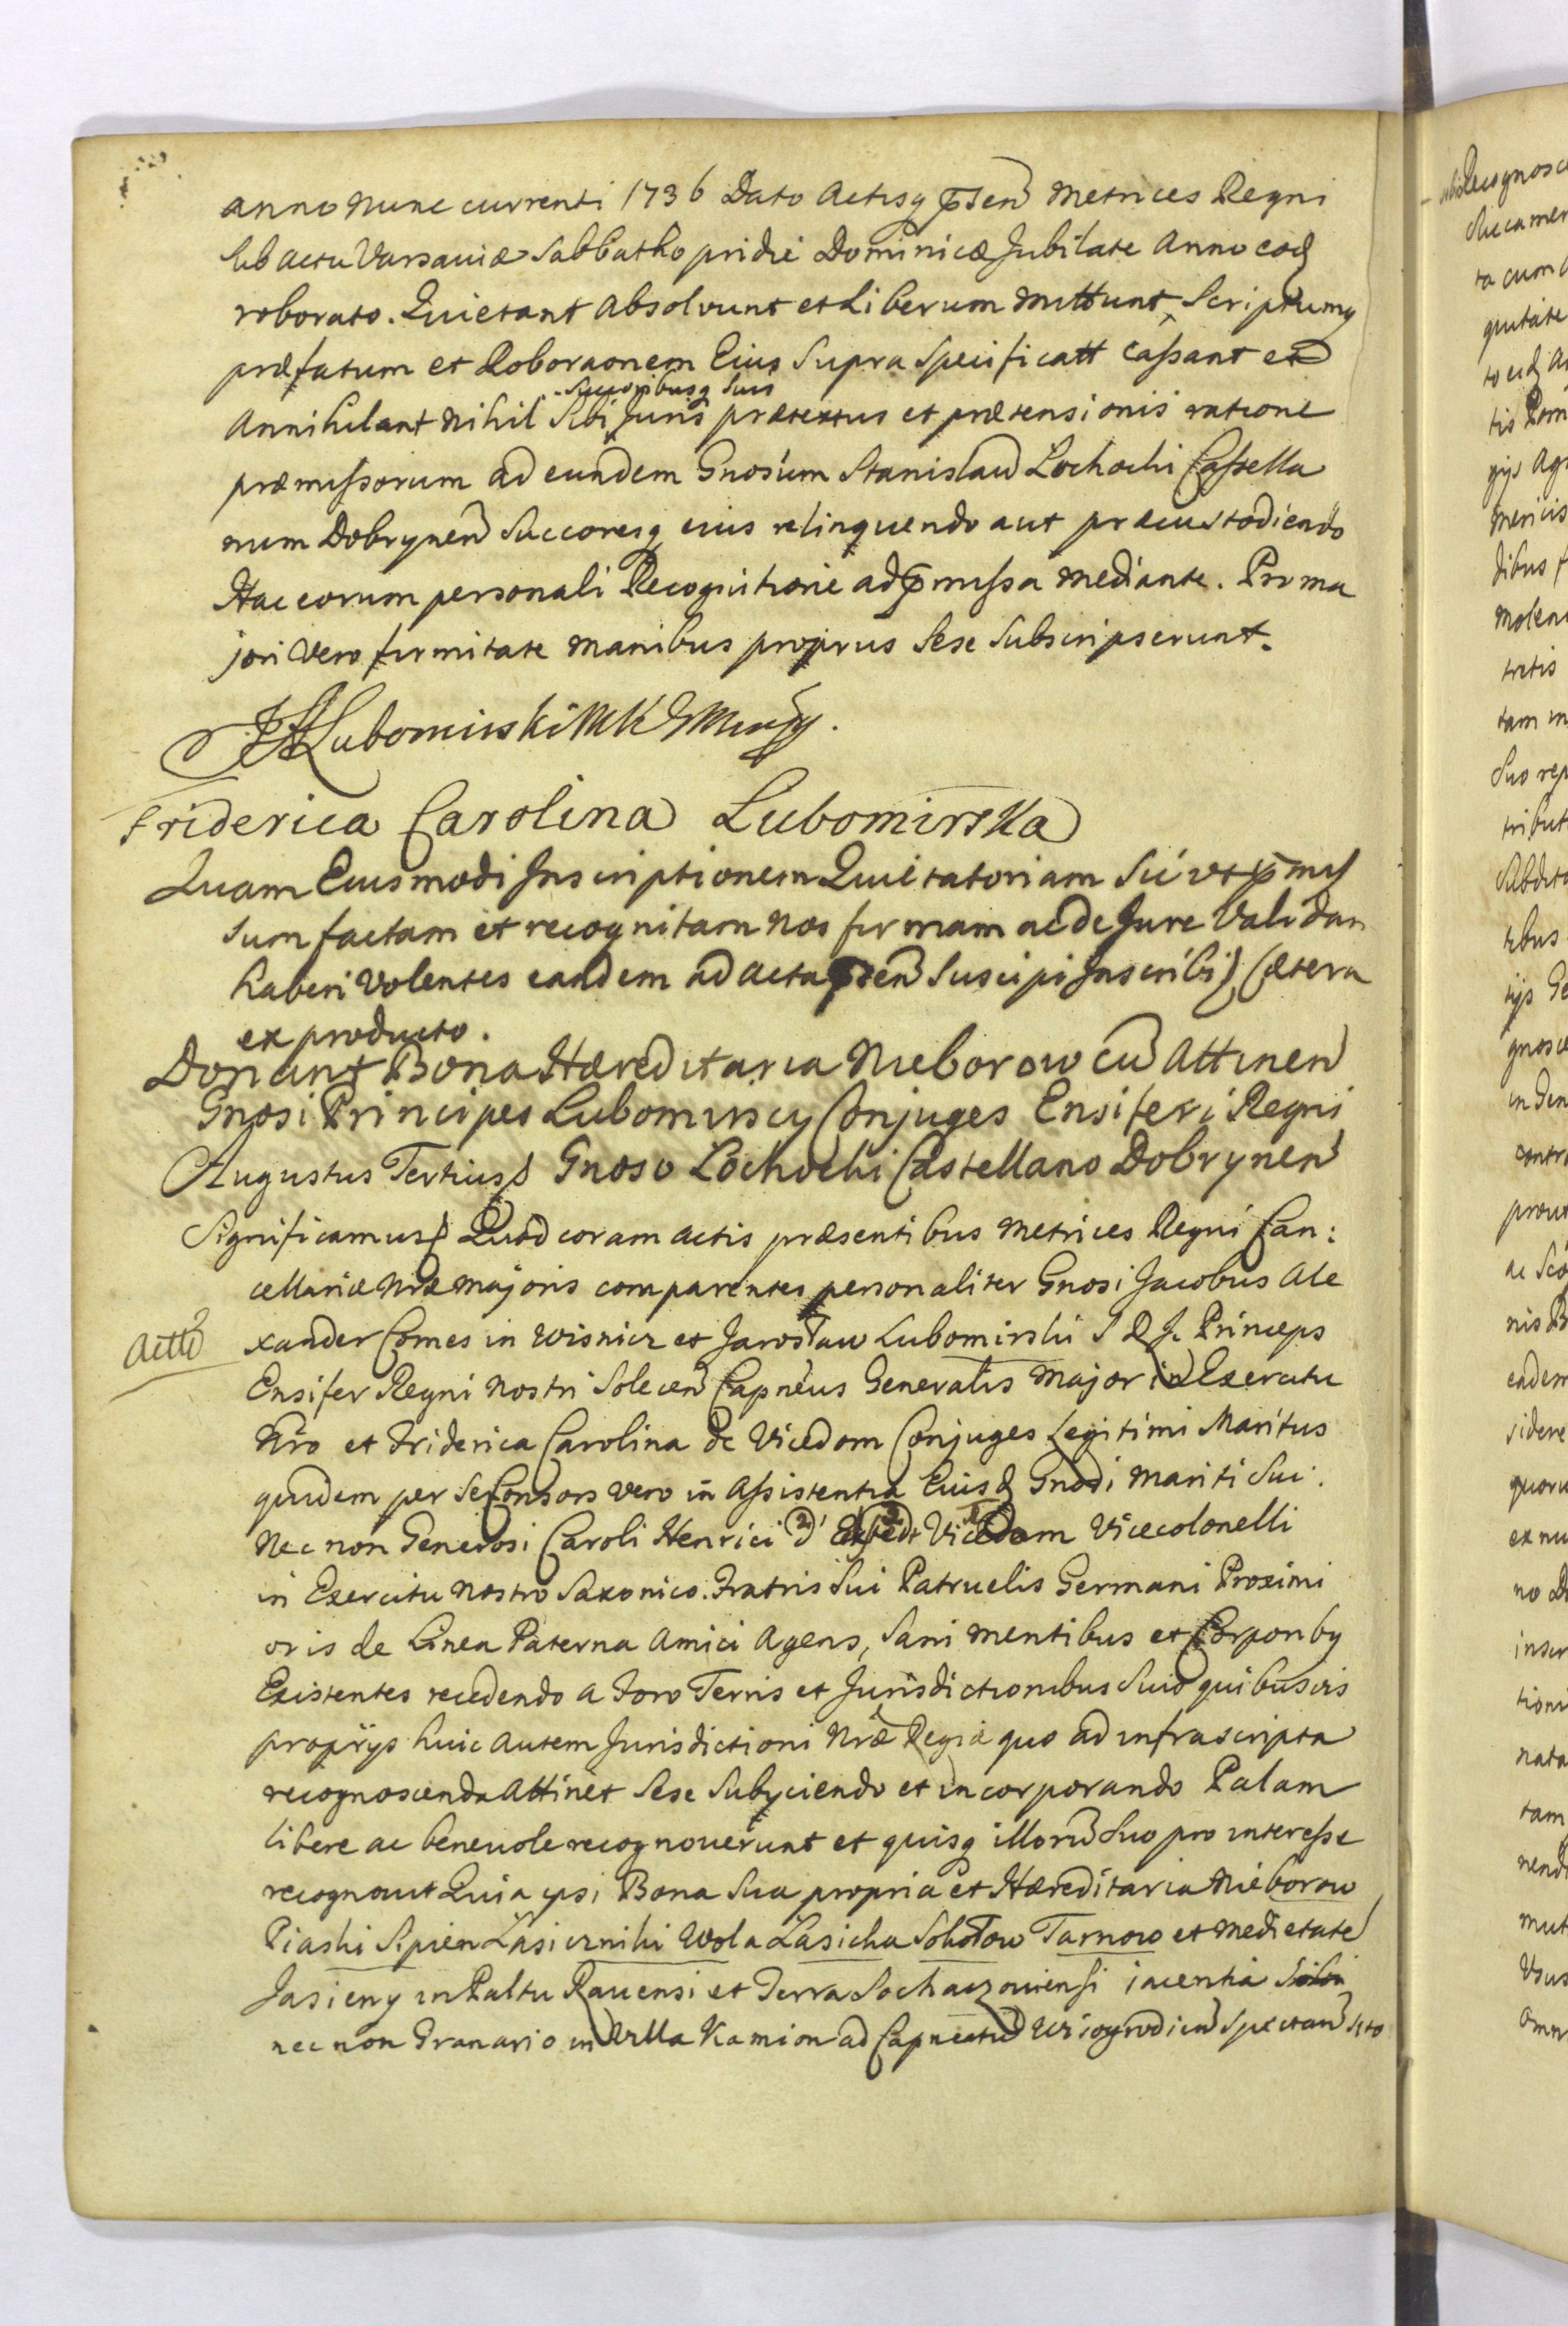 anno nunc currenti 1736 Dato Actisq pnsen Metrices Regni
sub actu Varsaviæ Sabbatho pridie Dominicæ Jubilate Anno eod
roborato. Quietant Absolvunt et Liberum mittunt Scriptumq
præfatum et Roboraonem Eius Supra Specificatt cassant et
Succoribusq Suis
Annihilant nihil Sibi Juris prætextus et prætensionis ratione
præmissorum ad eundem Gnosum Stanislaum Lochocki Castella
num Dobrynen Succoresq eius relinquendo aut præcustodiendo
Hac eorum personali Recognitione ad pmissa mediante. Pro ma
jori vero firmitate manibus propriis Sese Subscripserunt.
Lubomirski MK
Friderica Carolina Lubomirska
Quam Eiusmodi Inscriptionem Quietatoriam Sic ut pmis
sum factam et recognitam nos firmam ac de Jure Validam
haberi volentes eandem ad acta pnsen Suscipi Inscribi Cætera
ex producto.
Donant Bona Hæreditaria Nieborow cu Attinen
Gnosi Principes Lubomirscy Conjuges Ensiferi Regni
Augustus Tertius Gnoso Lochocki Castellano Dobrynen
Significamus Quod coram actis præsentibus Metrices Regni Can:
cellariæ Nræ Majoris comparentes personaliter Gnosi Jacobus Ale
xander Comes in Wisnicz et Jaroslaw Lubomirski S R J. Princeps
Actt
Ensifer Regni Nostri Solecen Capneus Generalis Major in Exercitu
Nro et Friderica Carolina de Vicedom Conjuges Legitimi Maritus
quidem per se Consors vero in Assistentia Eiusd Gnosi Mariti Sui.
Nec non Generosi Caroli Henrici d' Vicedom Vicecolonelli
in Exercitu Nostro Saxonico. Fratris Sui Patruelis Germani Proximi
oris de Linea Paterna Amici Agens, Sani mentibus et Corporiby
Existentes recedendo a Foro Terris et Jurisdictionibus Suis quibusvis
proprijs huic autem Jurisdictioni Nræ Regiæ quo ad infrascripta
recognoscenda Attinet Sese Subijciendo et incorporando Palam
libere ac benevole recognoverunt et quisq illoru Suo pro interesse
recognovit Quia ipsi Bona Sua propria et Hæreditaria Nieborow
Piaski Sipien Lasieczniki Wola Lasicka Sokołow Tarnow et medietate
Jasieny in Paltu Ravensi et Terra Sochaczoviensi iacentia
nec non Granario in Villa Kamion ad Capneatu Wisogrodien Spectan sito